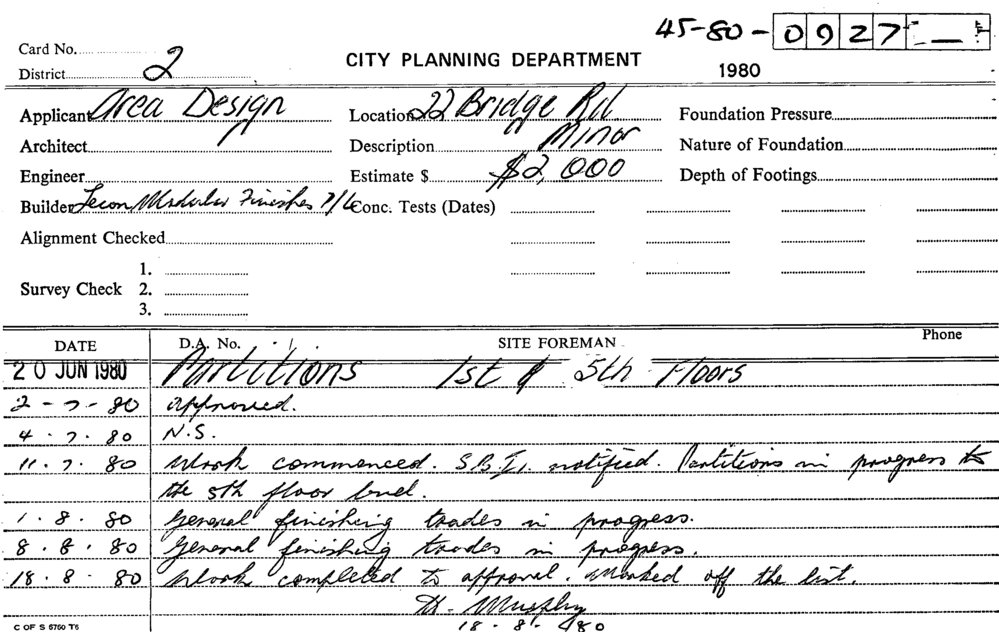 45-80-0927 —
Card No.
District 2
CITY PLANNING DEPARTMENT
1980
Applicant Area Design Location 22 Bridge Rd Foundation Pressure
Architect Description Minor Nature of Foundation
Engineer Estimate $ $2,000 Depth of Footings
Builder Modular Finishes P/L Conc. Tests (Dates)
Alignment Checked
1.
Survey Check 2.
3.
DATE D.A. No. SITE FOREMAN Phone
20 JUN 1980 Partitions 1st & 5th Floors
2-7-80 approved.
4.7.80 N.S.
11.7.80 Work commenced. S.B.I. notified. Partitions in progress to
the 5th floor level.
1.8.80 General finishing trades in progress.
8.8.80 General finishing trades in progress.
18.8.80 Work completed to approval. Marked off the list.
Murphy
18.8.80
C OF S 5750 T6